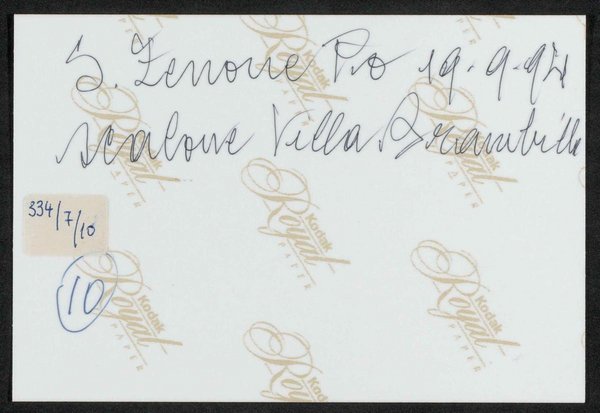 S. Zenone Po 19-9-94
scalone Villa Brambilla
334/7/10
10
Kodak
Royal
PAPER
Kodak
Royal
PAPER
Kodak
Royal
PAPER
Kodak
Royal
PAPER
Kodak
Royal
PAPER
Kodak
Royal
PAPER
Kodak
Royal